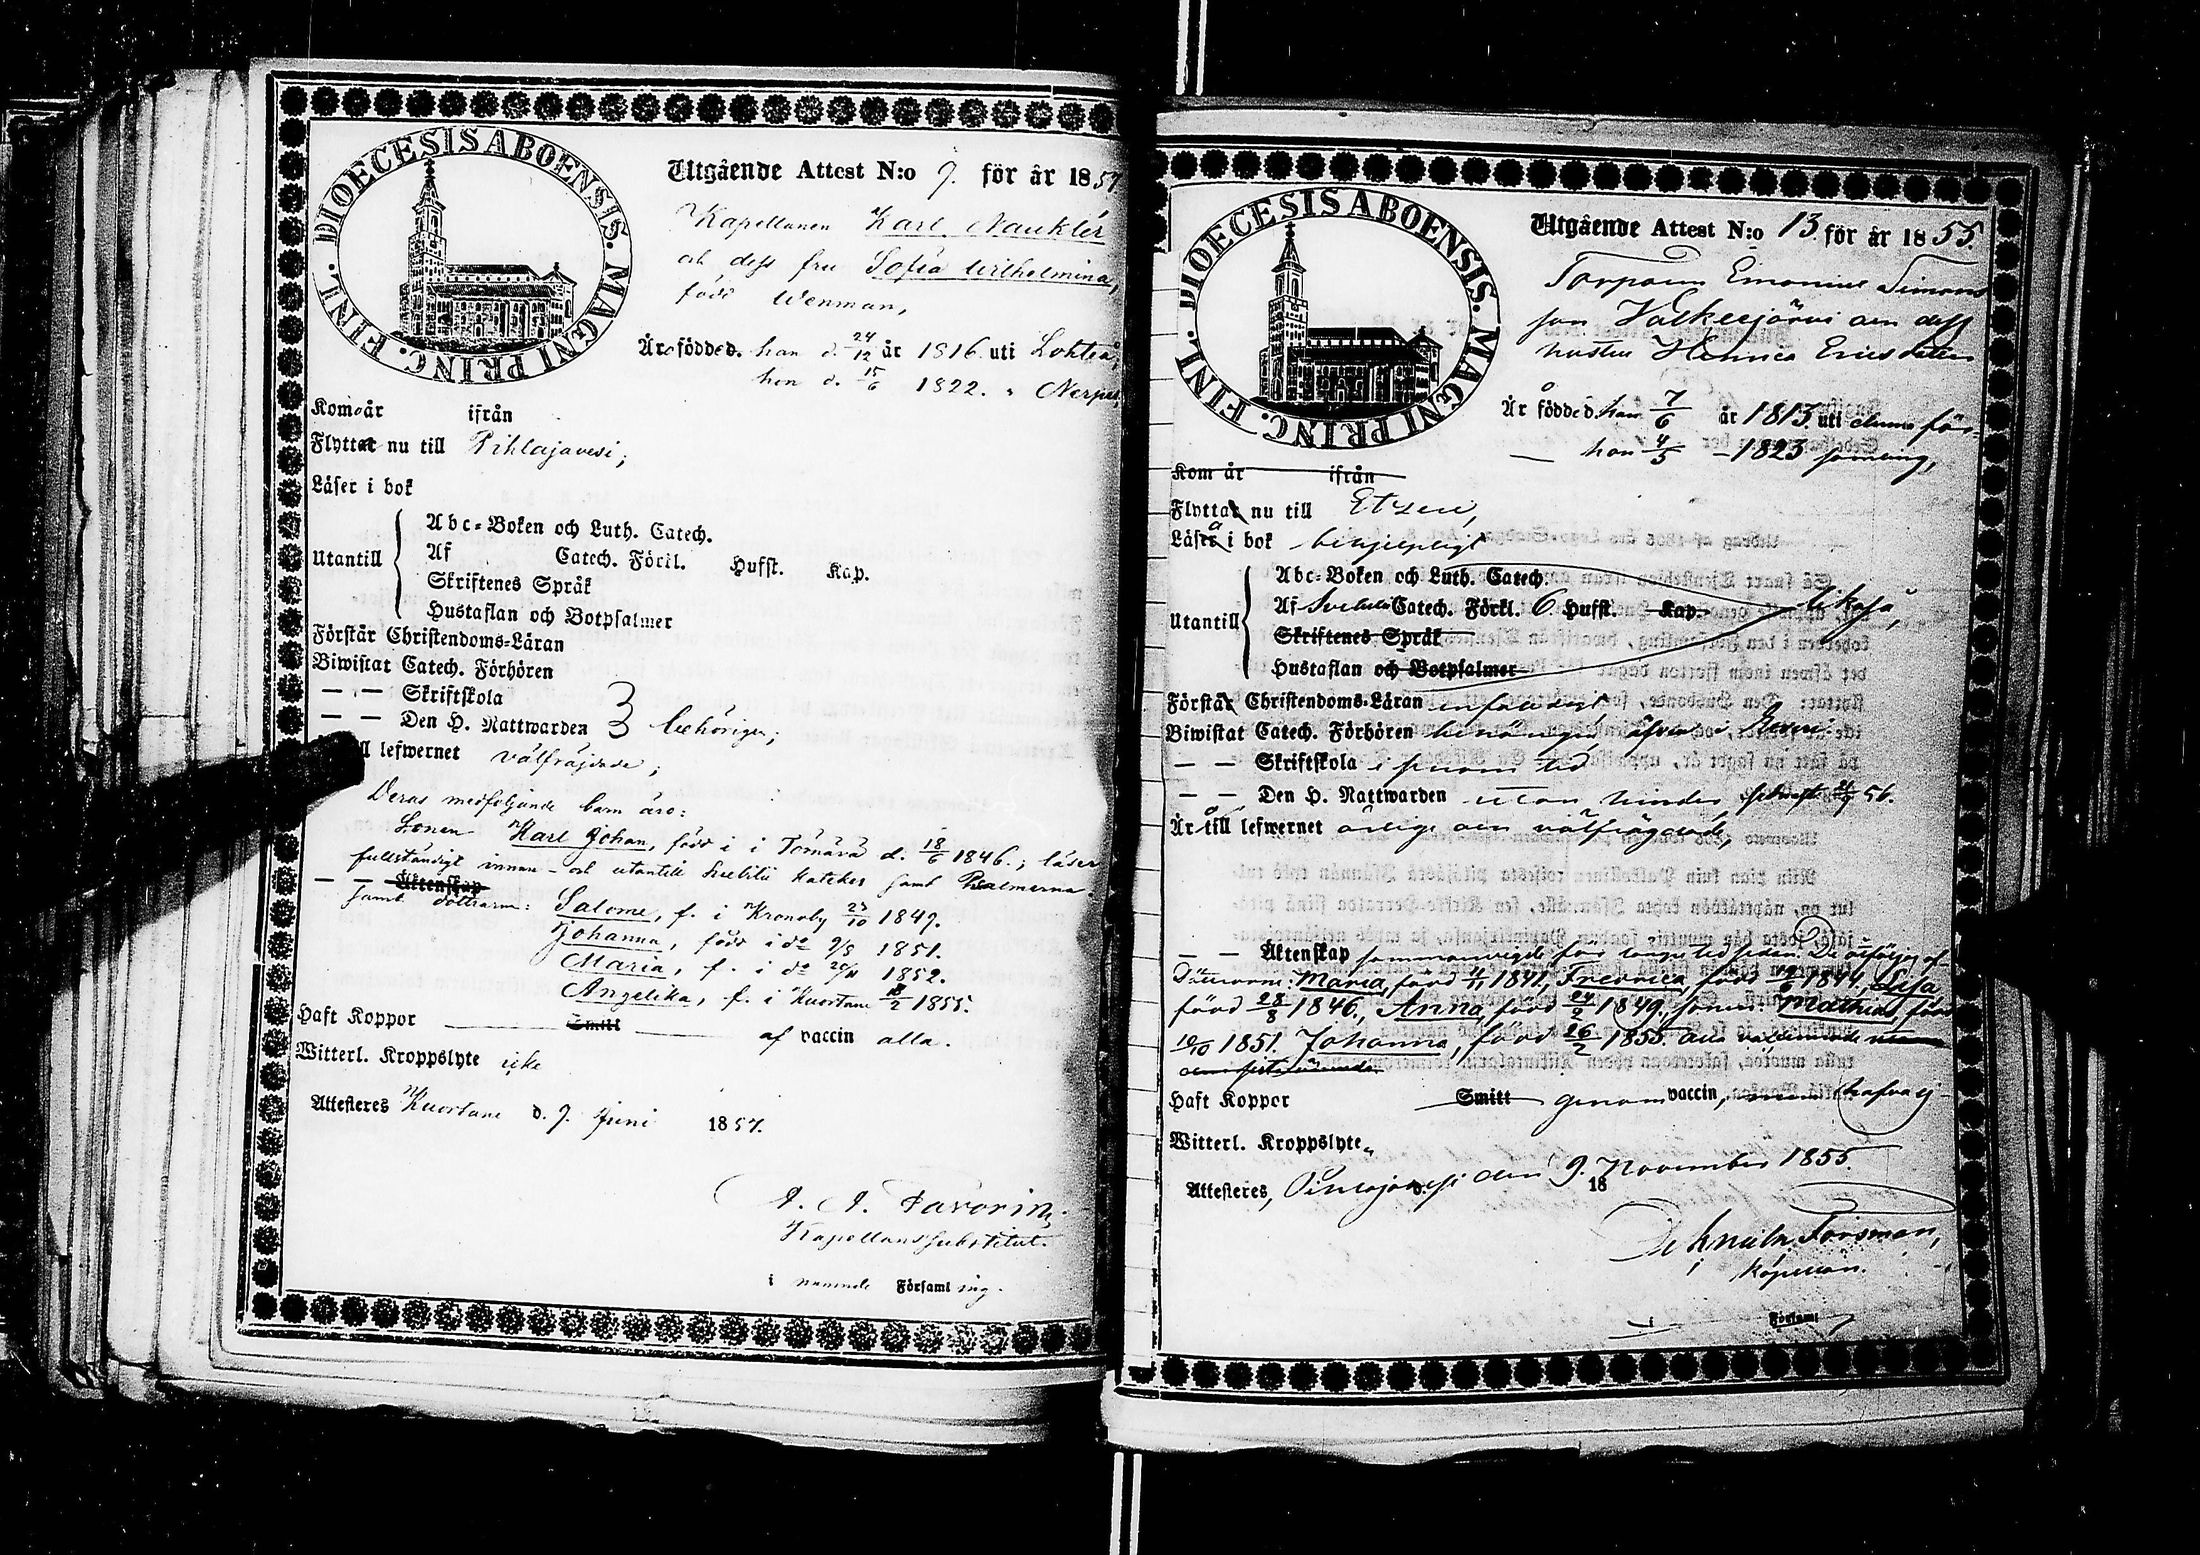 DIOECESIS ABOENSIS. MAGNI PRINC. FINL.
Utgående Attest N:o 9. för år 1857
Kapellanen Karl Nauklér
och dess fru Sofia Wilhelmina,
född Wenman,
Äro födde d. han d. 24/12 år 1816 uti Lohteå,
hon d. 15/6 1822. " Nerpes,
Kom år ifrån
Flytta nu till Pihlajavesi;
Läser i bok
Utantill
Abc-Boken och Luth. Catech.
Af Catech. Förkl. Hufst. Kap.
Skriftenes Språk
Hustaflan och Botpsalmer
Förstår Christendoms-Läran
Biwistat Catech. Förhören
— — Skriftskola
— — Den H. Nattwarden behörigen;
till lefwernet välfräjdade;
Deras medföljande barn äro:
Sonen Karl Johan, född i Temmes d. 18/6 1846.; läser
fullständigt innan- och utantill Svebilii katekes samt Psalmerna
— — Äktenskap
samt döttrarne: Salome, f. i Kronoby 23/10 1849.
Johanna, född i do 9/8 1851.
Maria, f. i do 20/11 1852.
Angelika, f. i Kuortane 18/2 1855.
Haft Koppor Smitt af vaccin alla.
Witterl. Kroppslyte icke
Attesteres Kuortane d. 9. Juni 1857.
A. A. Favorin,
Kapellans Substitut.
i nämnde Församling.
DIOECESIS ABOENSIS. MAGNI PRINC. FINL.
Utgående Attest N:o 13. för år 1855.
Torparen Emanuel Simons
son Valkeejärvi och dess
hustru Henrica Ericsdotter
Är födde d. han 7/6 år 1813. uti denna för-
— hon 4/5 — 1823 samling,
Kom år ifrån
Flytta nu till Etseri,
Läsa i bok
Utantill
Abc-Boken och Luth. Catech. likaså,
Af Svebelii Catech. Förkl. 6 Hufst. Kap.
Skriftenes Språk
Hustaflan och Botpsalmer
Förstå Christendoms-Läran enfaldigt
Biwistat Catech. Förhören äfven i
— — Skriftskola i sinom tid
— — Den H. Nattwarden utan hinder, 56.
Är till lefwernet ärlige och välfrägdade,
— — Äktenskap sammanvigde för längre tid sedan. De åtföljas af
Döttrarne: Maria, född 1841, Fredrica, född 1844, Lisa
född 28/8 1846., Anna, född 24/2 1849. Sonen: Mathias, född
10/10 1851. Johanna, född 26/2 1855. Alla vaccinerade utom
Haft Koppor Smitt genom vaccin, hafva ej
Witterl. Kroppslyte "
Attesteres, Pihlajavesi den 9. November 1855.
18
Forsman,
Kapellan.
Församl